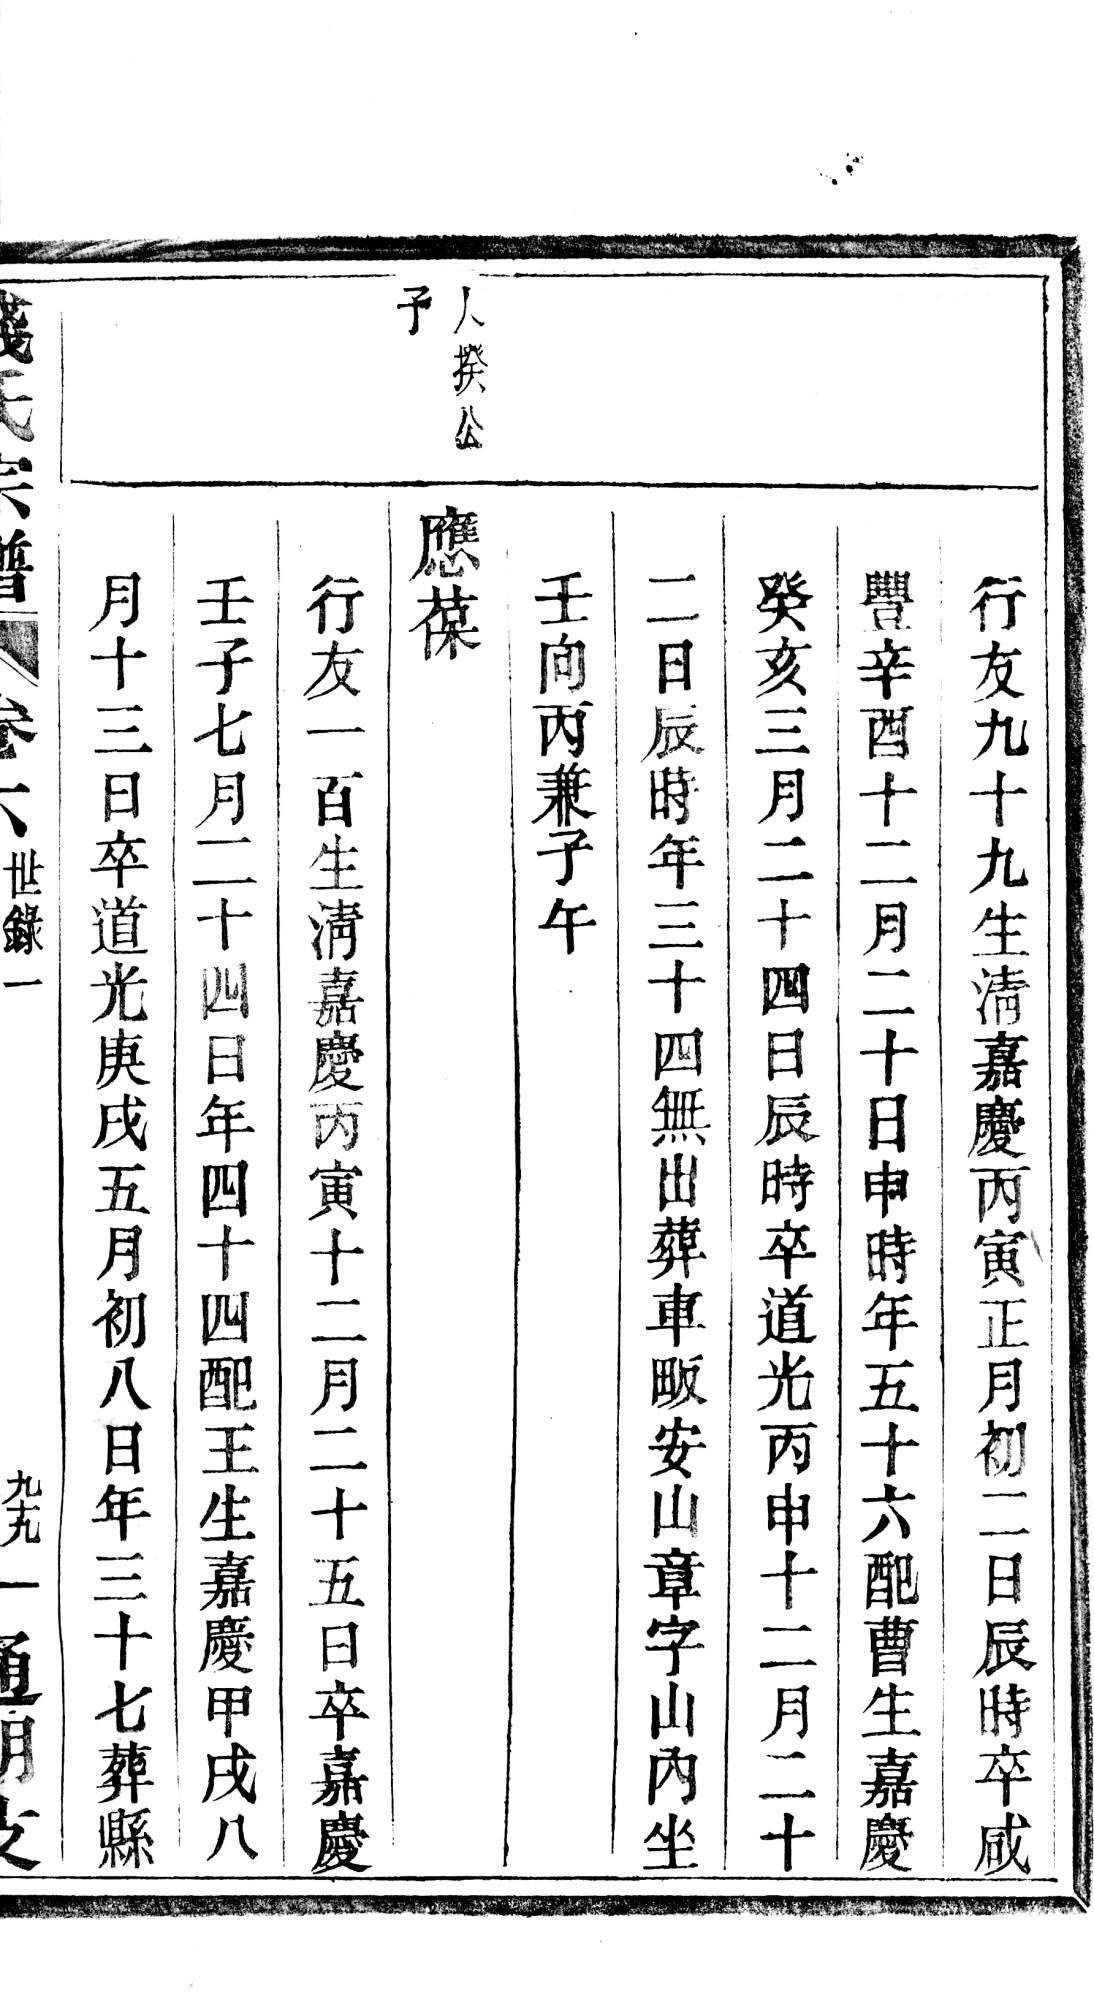 行友九十九生淸嘉慶丙寅正月初二日辰時卒咸
豐辛酉十二月二十日申時年五十六配曹生嘉慶
癸亥三月二十四日辰時卒道光丙申十二月二十
二日辰時年三十四無出葬車畈安山章字山內坐
壬向丙兼子午
人揆公
子
應葆
行友一百生淸嘉慶丙寅十二月二十五日卒嘉慶
壬子七月二十四日年四十四配王生嘉慶甲戌八
月十三日卒道光庚戌五月初八日年三十七葬縣
錢氏宗譜 卷六 世錄一 九十九 一 通明支